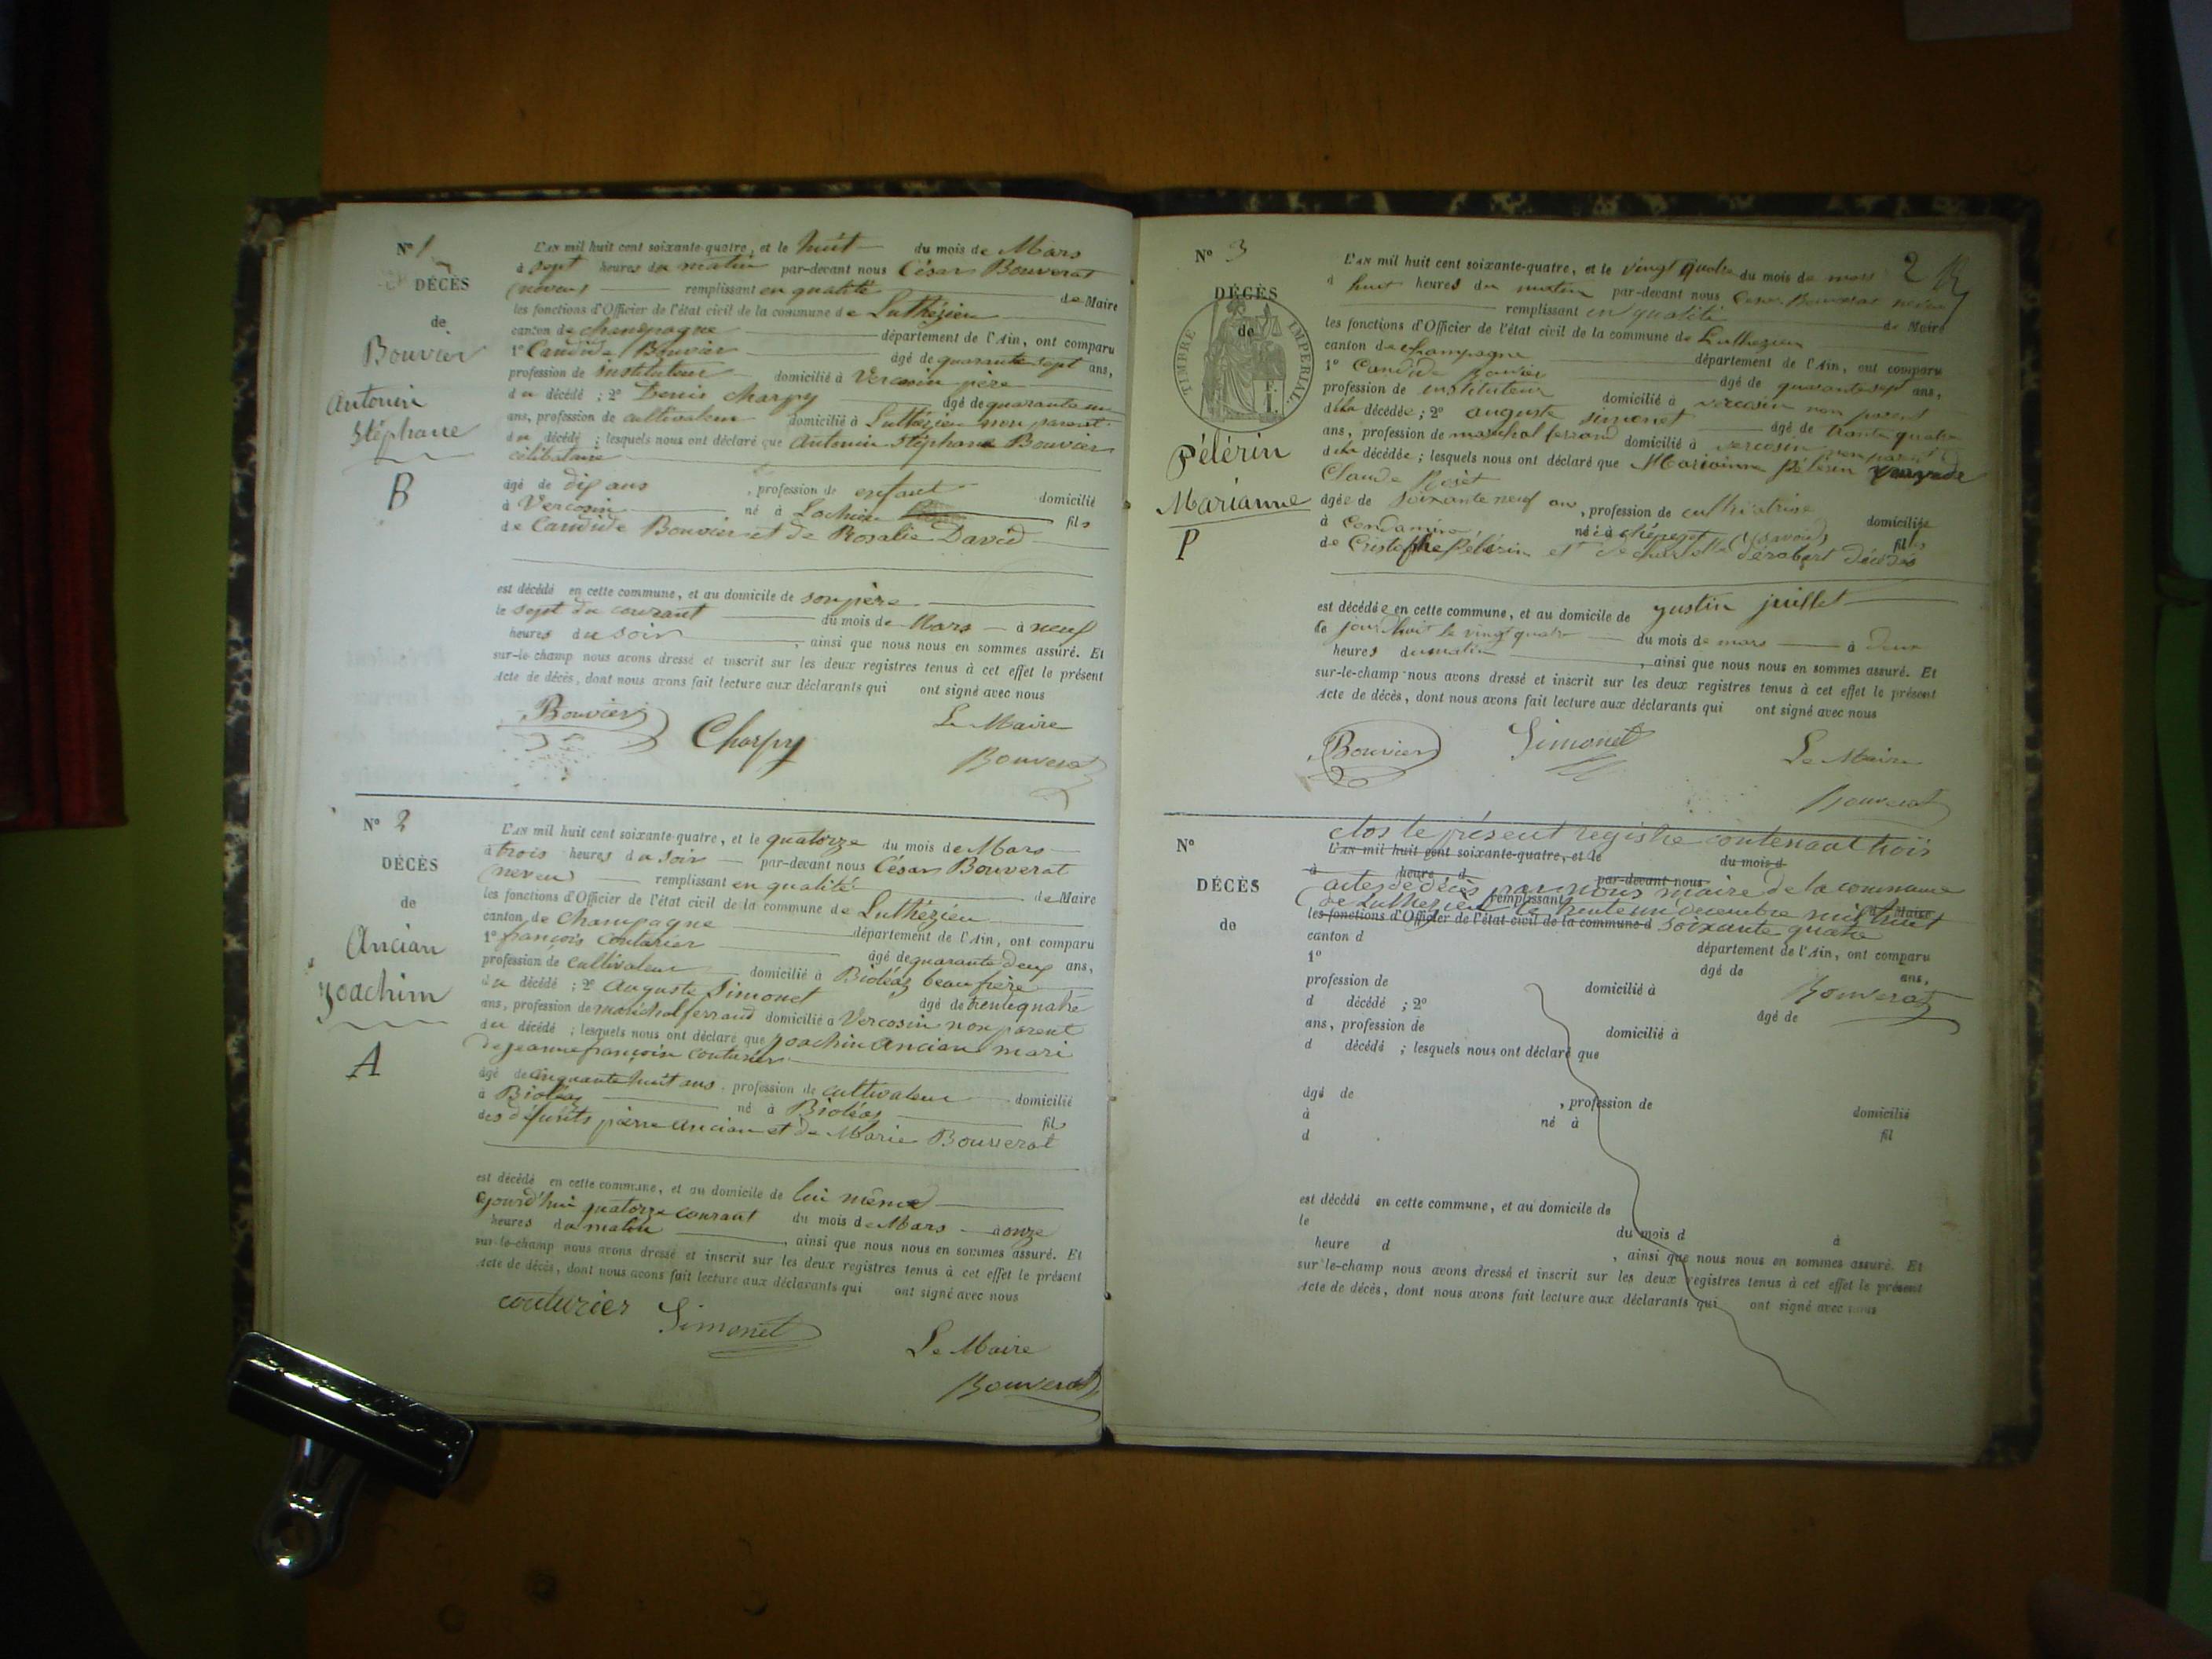 N° 1
DÉCÈS
de
Bouvier
Antonin
Stéphane
B
L'AN mil huit cent soixante-quatre, et le huit du mois de Mars
à sept heures du matin par-devant nous César Bouverat
(neveu) remplissant en qualité de Maire
les fonctions d'Officier de l'état civil de la commune de Luthézieu
canton de champagne département de l'Ain, ont comparu
1° Candide Bouvier âgé de quarante sept ans,
profession de instituteur domicilié à Vercosin père
du décédé ; 2° Denis Charpy âgé de quarante un
ans, profession de cultivateur domicilié à Luthézieu non parent
du décédé ; lesquels nous ont déclaré que Antonin Stéphane Bouvier
célibataire
âgé de dix ans , profession de enfant domicilié
à Vercosin né à Lochieu fils
de Candide Bouvier et de Rosalie David
est décédé en cette commune, et au domicile de son père
le sept du courant du mois de Mars à neuf
heures du soir , ainsi que nous nous en sommes assuré. Et
sur-le-champ nous avons dressé et inscrit sur les deux registres tenus à cet effet le présent
Acte de décès, dont nous avons fait lecture aux déclarants qui ont signé avec nous
Bouvier Charpy Le Maire
Bouverat
N° 2
DÉCÈS
de
Ancian
Joachim
A
L'AN mil huit cent soixante-quatre, et le quatorze du mois de Mars
à trois heures du soir par-devant nous César Bouverat
(neveu) remplissant en qualité de Maire
les fonctions d'Officier de l'état civil de la commune de Luthézieu
canton de champagne département de l'Ain, ont comparu
1° françois couturier âgé de quarante deux ans,
profession de cultivateur domicilié à Bioléaz beau frère
du décédé ; 2° Auguste Simonet âgé de trente quatre
ans, profession de maréchal ferrand domicilié à Vercosin non parent
du décédé ; lesquels nous ont déclaré que Joachim Ancian mari
de jeanne françoise couturier
âgé de cinquante huit ans , profession de cultivateur domicilié
à Bioléaz né à Bioléaz fils
des défunts pierre Ancian et de Marie Bouverat
est décédé en cette commune, et au domicile de lui même
ajourd'hui quatorze courant du mois de Mars à onze
heures du matin , ainsi que nous nous en sommes assuré. Et
sur-le-champ nous avons dressé et inscrit sur les deux registres tenus à cet effet le présent
Acte de décès, dont nous avons fait lecture aux déclarants qui ont signé avec nous
couturier Simonet
Le Maire
Bouverat
2
N° 3
DÉCÈS
de
TIMBRE IMPERIAL
Pélérin
Marianne
P
L'AN mil huit cent soixante-quatre, et le vingt quatre du mois de mars
à huit heures du matin par-devant nous César Bouverat neveu
remplissant en qualité de Maire
les fonctions d'Officier de l'état civil de la commune de Luthezieu
canton de champagne département de l'Ain, ont comparu
1° Candide Bouvier âgé de quarante sept ans,
profession de instituteur domicilié à vercosin non parent
de la décédée ; 2° auguste simonet âgé de trente quatre
ans, profession de maréchal ferrand domicilié à vercosin non parent
de la décédée ; lesquels nous ont déclaré que Marianne Pélérin
Claude
âgée de soixante neuf ans , profession de cultivatrice domiciliée
à Condamine née à (savoie) fille
de Cristophe Pélérin et de dérobert décédés
est décédée en cette commune, et au domicile de justin juillet
le jourdhuit le vingt quatre du mois de mars à deux
heures du matin , ainsi que nous nous en sommes assuré. Et
sur-le-champ nous avons dressé et inscrit sur les deux registres tenus à cet effet le présent
Acte de décès, dont nous avons fait lecture aux déclarants qui ont signé avec nous
Bouvier Simonet Le Maire
Bouverat
N°
DÉCÈS
de
clos le présent registre contenant trois
L'AN mil huit cent soixante-quatre, et le du mois d
à heure d par-devant nous
actes de décès par nous maire de la commune
remplissant
de Luthezieu le trente un décembre mil huit
les fonctions d'Officier de l'état civil de la commune d soixante quatre
canton d département de l'Ain, ont comparu
1° âgé de ans,
profession de domicilié à Bouverat
d décédé ; 2° âgé de
ans, profession de domicilié à
d décédé ; lesquels nous ont déclaré que
âgé de , profession de domicilié
à né à fil
d
est décédé en cette commune, et au domicile de
le du mois d à
heure d , ainsi que nous nous en sommes assuré. Et
sur-le-champ nous avons dressé et inscrit sur les deux registres tenus à cet effet le présent
Acte de décès, dont nous avons fait lecture aux déclarants qui ont signé avec nous